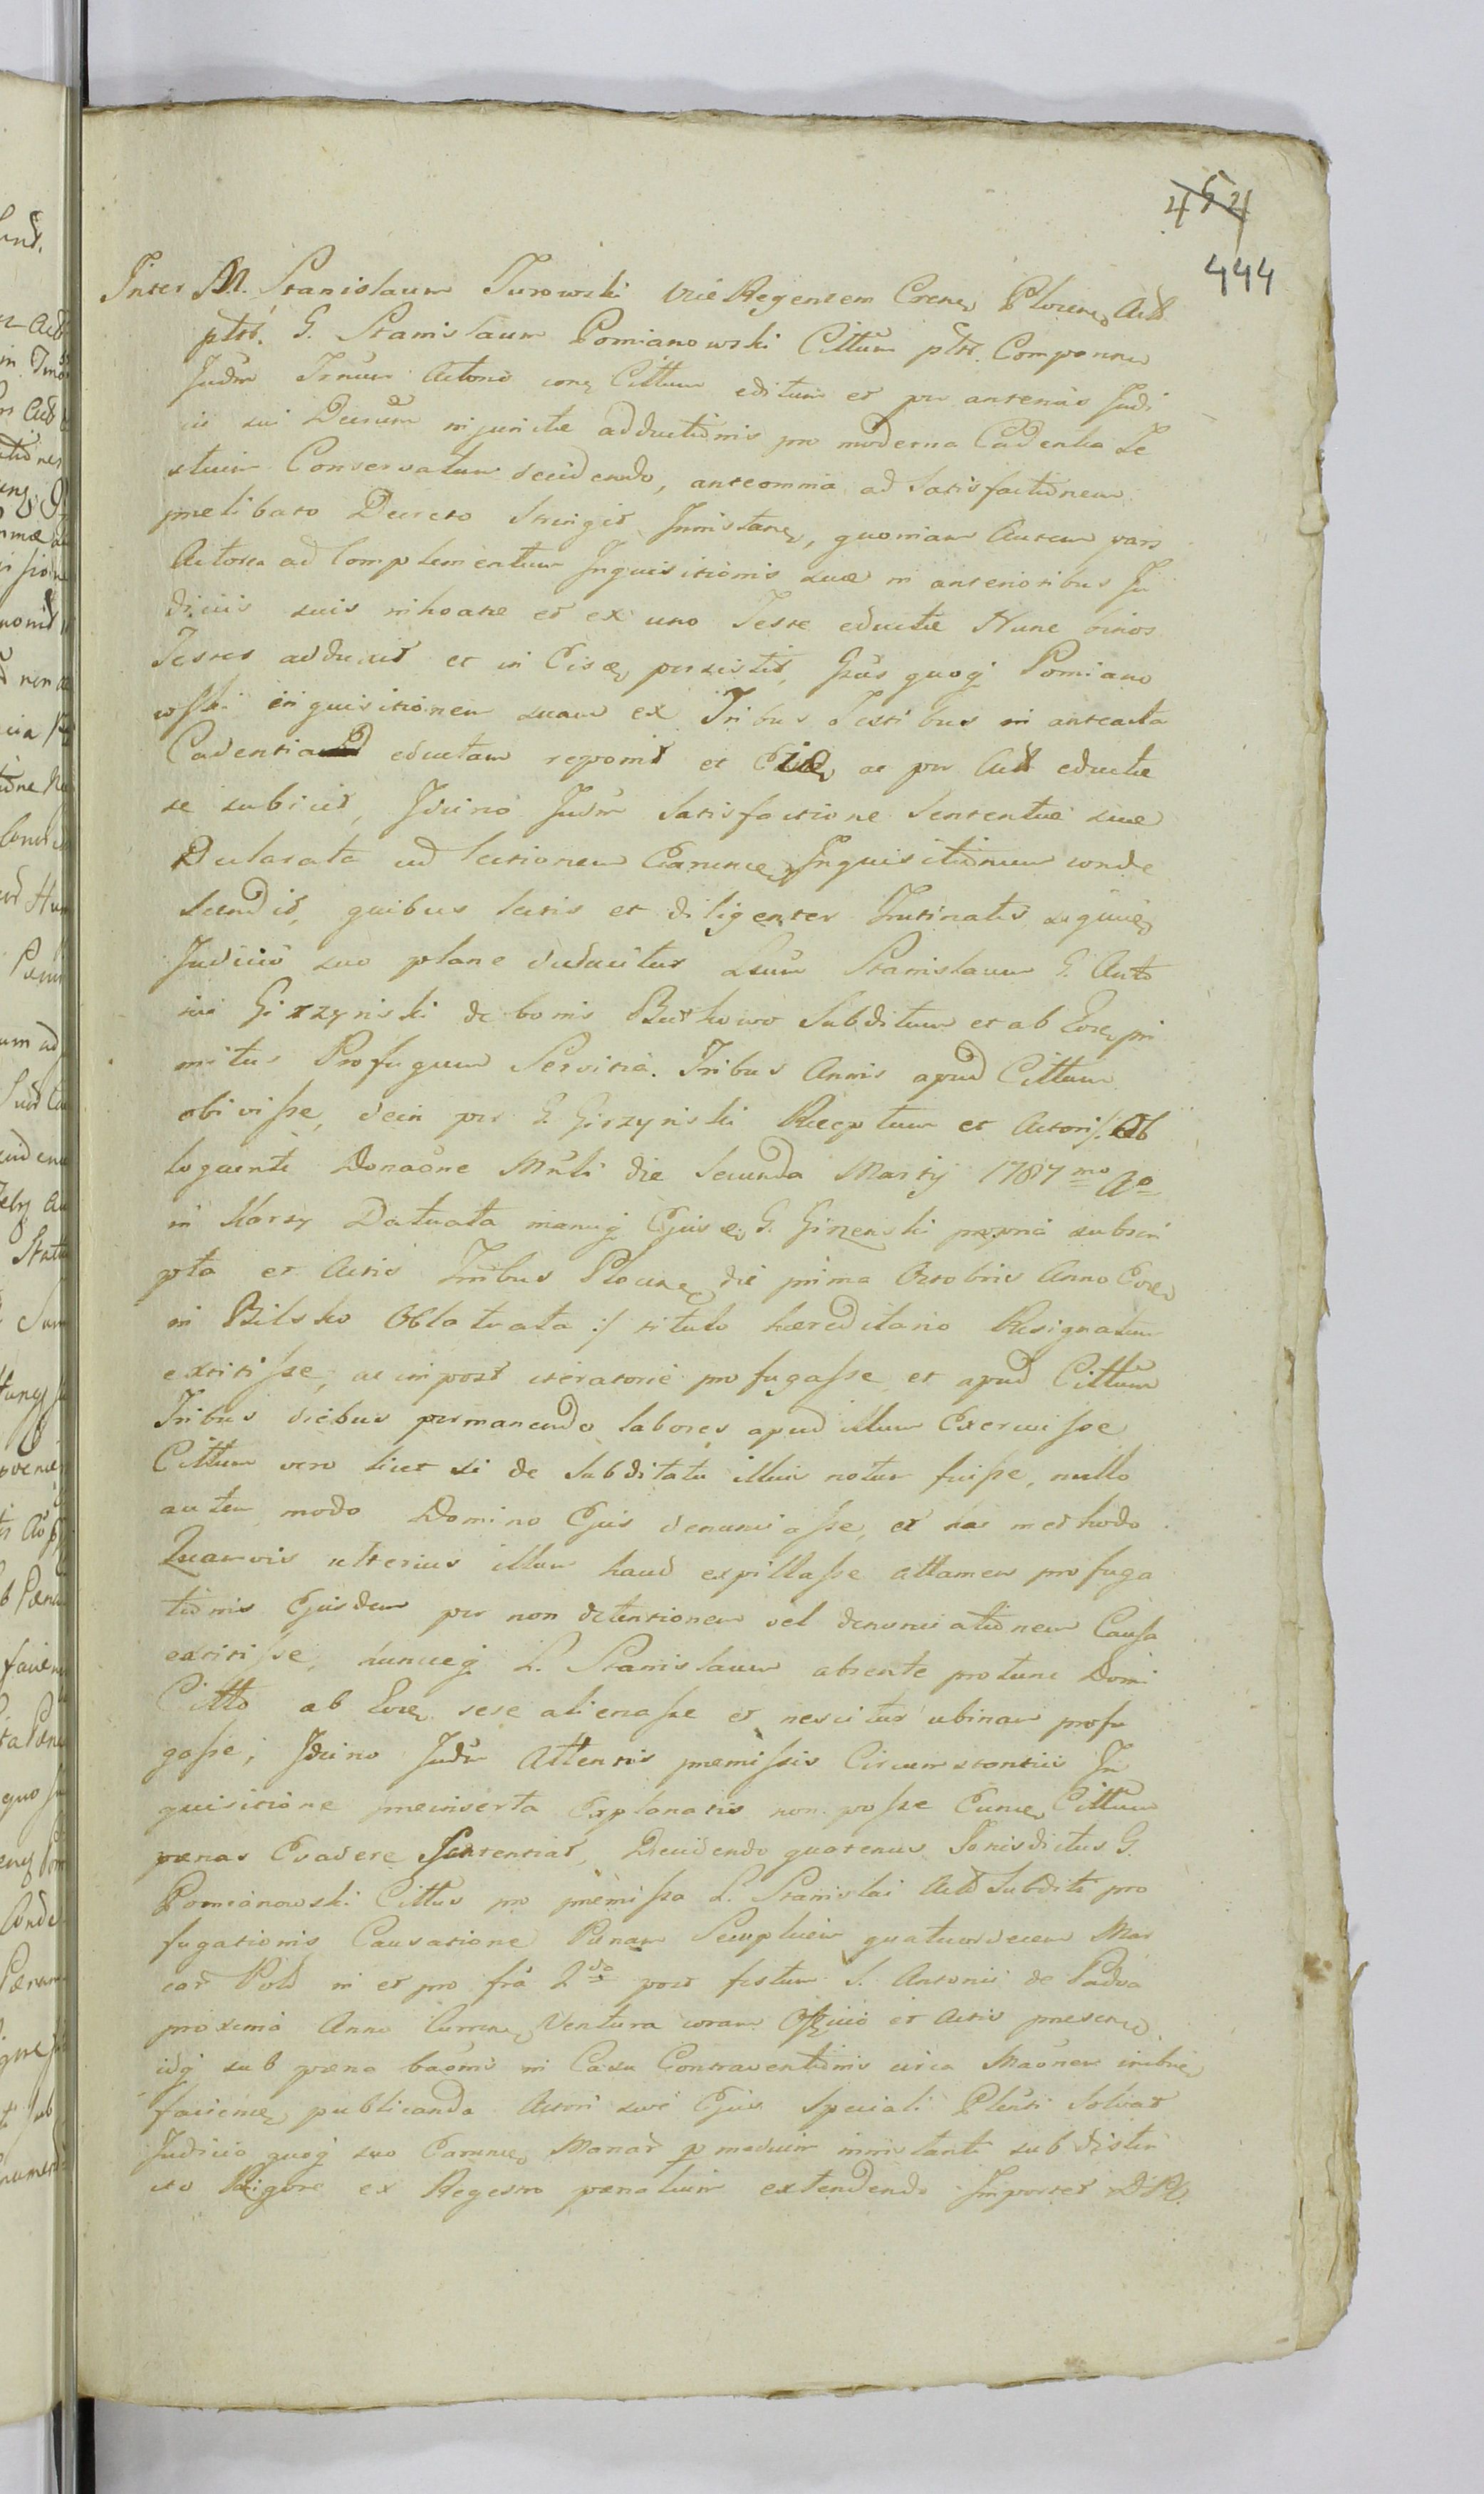 454
444
Inter M. Stanislaum Turowski Vice Regentem Crens Plocens Act
ptt. G. Stanislaum Pomianowski Cittum ptt. Comparen
Judm Trnum Actoris conq Cittum editum et per anterius Judi
cii sui Decrum injunctae adductionis pro moderna Cadentia Te
stium Conservatum decidendo, anteomnia ad Satisfactionem
prelibato Decreto Stringit Innistane, quoniam Autem pars
Actorea ad Complementum Inquisitionis suae in anterioribus Ju
diciis suis inhoatae et ex uno Teste eductae Nunc binos
Testes adduxit et in Eisd persistit, Gsus quoq Pomiano
wski inquisitionem suam ex Tribus Testibus in anteacta
Cadentia eductam reponit et ac per Act eductae
se subiicit, Idcirco Judm Satisfactione Sententiae suae
Declarata ad lectionem Earunce Inquisitionum conde
scendit, quibus lectis et diligenter Trutinatis
Judicio suo plane deducitur Lsum Stanislaum G. Anto
nii Girzynski de bonis Butkowo Subditum et ab Eore pri
mitus Profugum Servitia Tribus Annis apud Cittum
obivisse, dein per G. Girzynski Receptum et Actori /: Ab
loquente Donaone Mnli die Secunda Martij 1787mo Ao
in Karsy Datuata manuq Ejusd G. Girzenski propria subscri
pta et Actis Tribus Plocens die prima Octobris Anno Eore
in Bilsko Oblatuata :/ titulo haereditario Resignatum
extitisse, ac inpost iteratorie profugasse et apud Cittum
Tribus diebus permanendo labores apud illum Exercuisse
Cittum vero licet ei de Subditatu illius notum fuisse, nullo
autem modo Domino Ejus denunciasse, et hac methodo
Quamvis ulterius illum haud expillasse attamen profuga
tionis Ejusdem per non detentionem vel denunciationem Causa
extitisse, huncceq L. Stanislaum absente protunc Domi
Citto ab Eore sese alienasse et nescitur ubinam profu
gasse, Idcirco Judm Attentis premissis Circumstantiis In
quisitione preinserta Explanatis non posse Eunce Cittum
paenas Evadere Sententiat, Decidendo quatenus Ionisdictus G.
Pomianowski Cittus pro premissa L. Stanislai Act Subditi pro
fugationis Causatione Penam Seuplicem quatuordecem Mar
car Pold in et pro fra 2da post festum S. Antonii de Padva
proxima Anno Curren Ventura coram Officio et Actis presen
idq sub paena baonis in Casu Contraventionis circa Maonem
faciene publicanda Actori sive Ejus Speciali Plenti Solvat
Judicio quoq suo Earunce Manar p medium innistanti sub distri
cto Rigore ex Regestro paenalium extendendo Importet D.P.